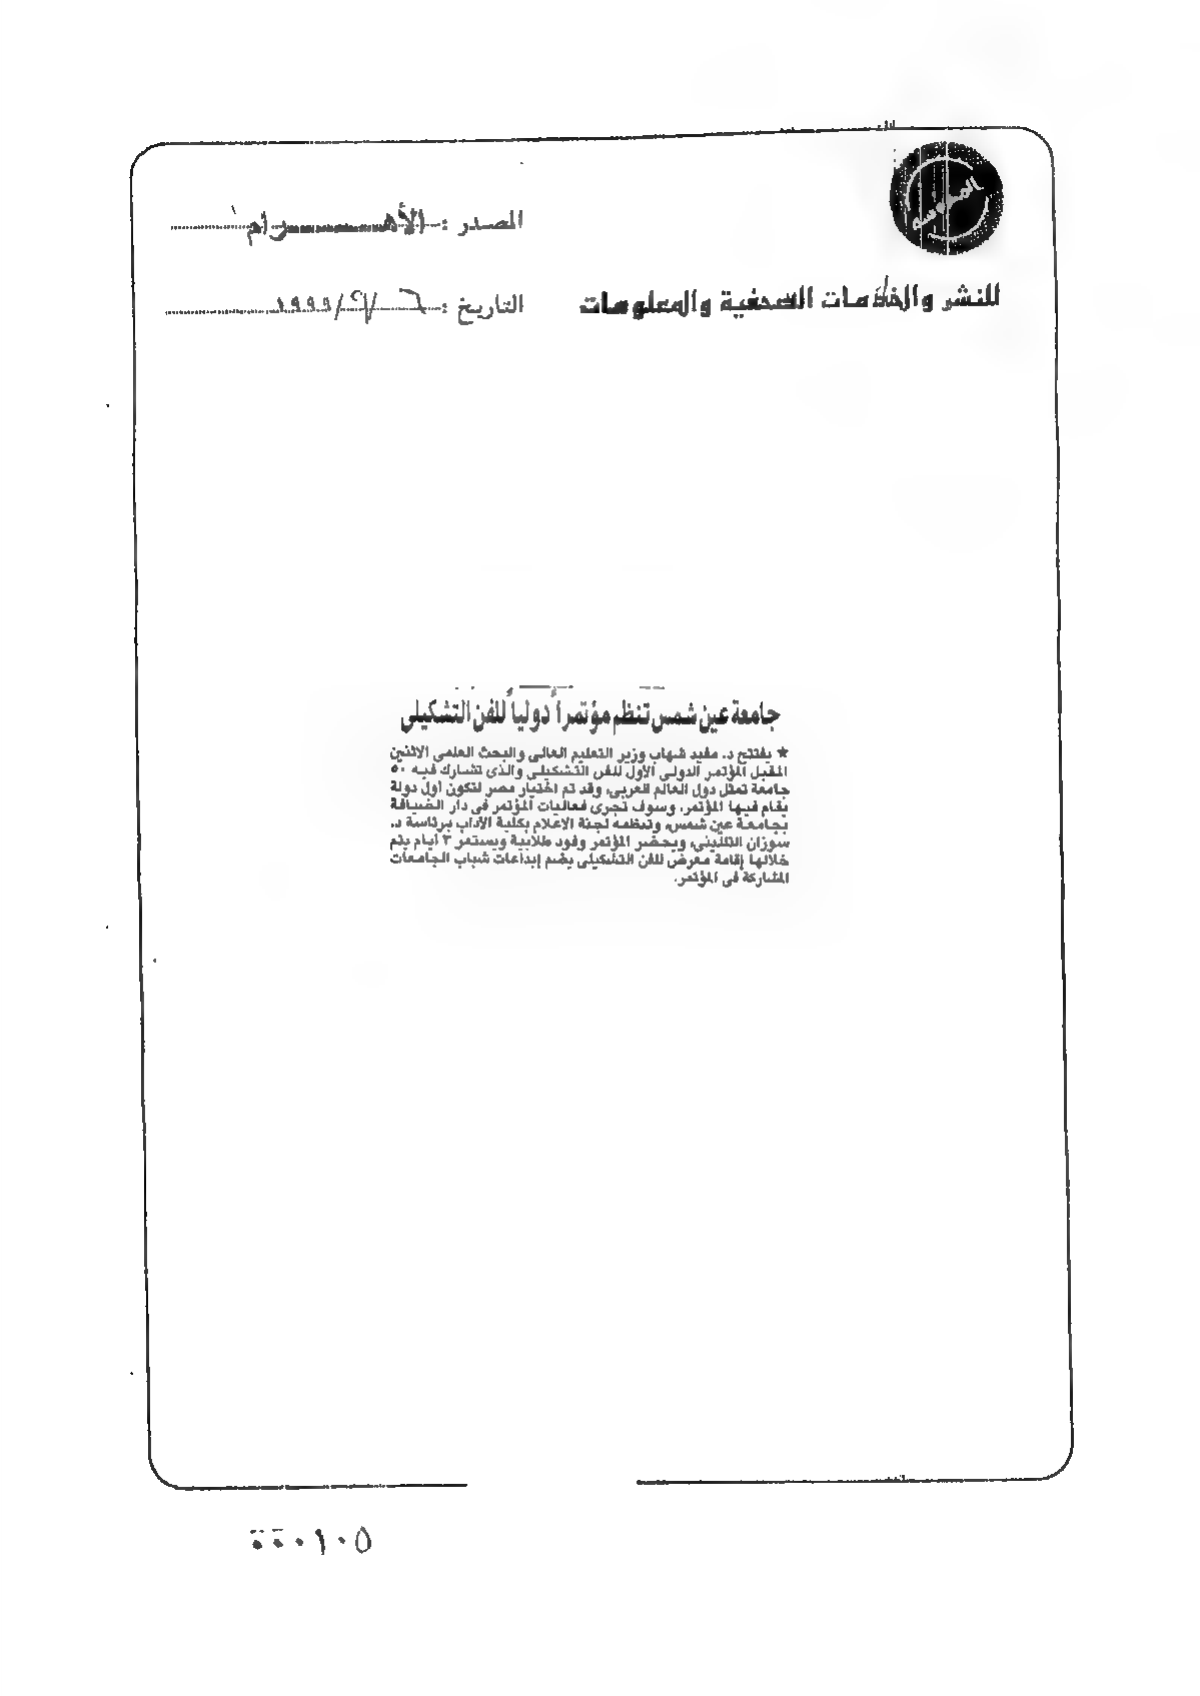 المصدر : الأهـــــــرام
للنشر والخدمات الصحفية والمعلومات
التاريخ : ٦/٩/١٩٩٩
جامعة عين شمس تنظم مؤتمراً دولياً للفن التشكيلى
★ يفتتح د. مفيد شهاب وزير التعليم العالى والبحث العلمى الاثنين
المقبل المؤتمر الدولى الأول للفن التشكيلى والذى تشارك فيه ٥٠
جامعة تمثل دول العالم العربى، وقد تم اختيار مصر لتكون أول دولة
يقام فيها المؤتمر، وسوف تجرى فعاليات المؤتمر فى دار الضيافة
بجامعة عين شمس، وتنظمه لجنة الاعلام بكلية الآداب برئاسة د.
سوزان القلينى، ويحضر المؤتمر وفود طلابية ويستمر ٣ أيام يتم
خلالها إقامة معرض للفن التشكيلى يضم إبداعات شباب الجامعات
المشاركة فى المؤتمر.